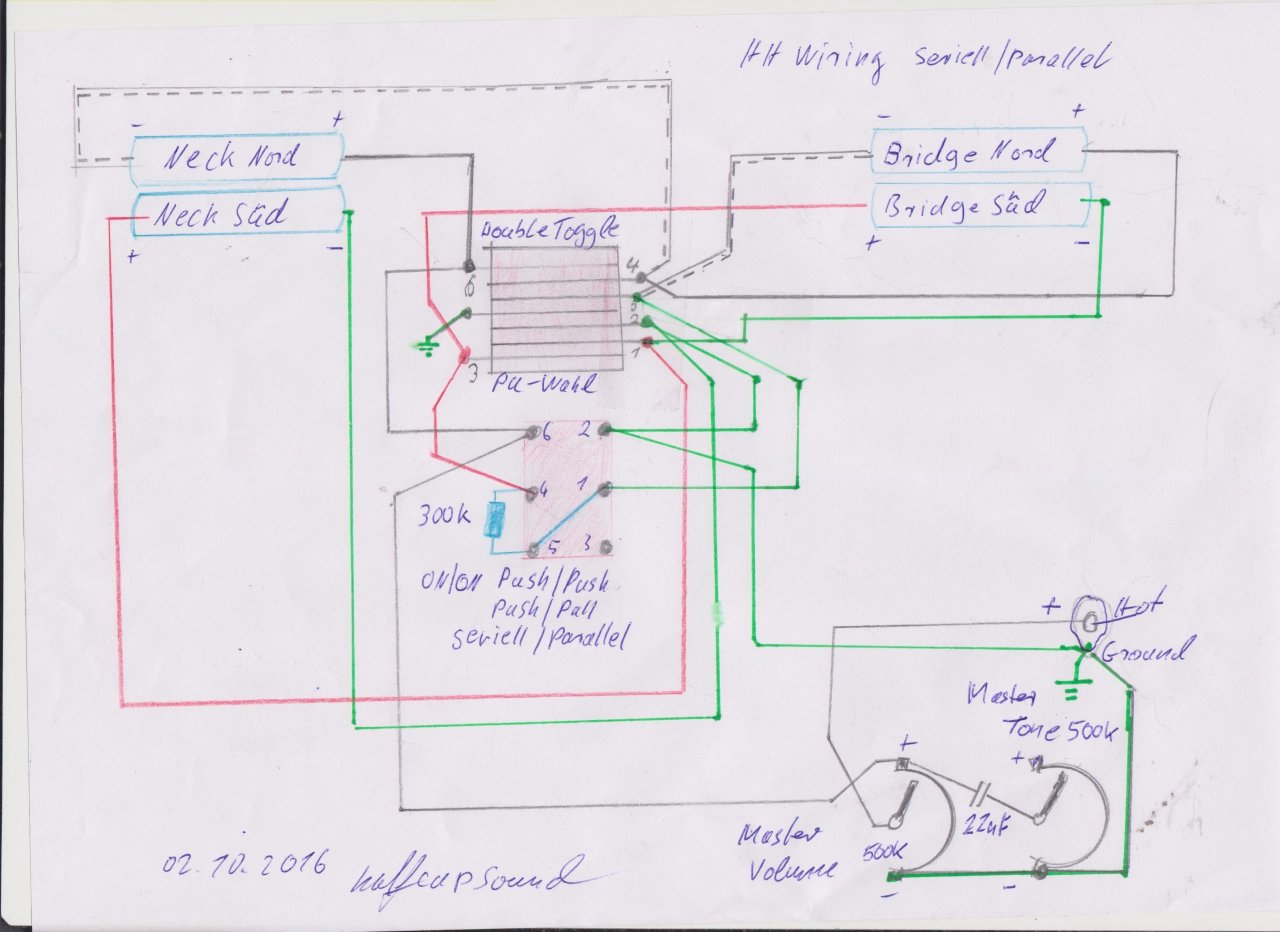 HH Wiring Seriell/Parallel
- +
Neck Nord
Neck Süd
+ -
- +
Bridge Nord
Bridge Süd
+ -
Double Toggle
6
3
4
3
2
1
PU-Wahl
6 2
4 1
5 3
300k
ON/ON Push/Push
Push/Pull
Seriell/Parallel
+ Hot
Ground
Master
Tone 500k
+
+
22nF
Master
Volume
500k
-
-
02.10.2016